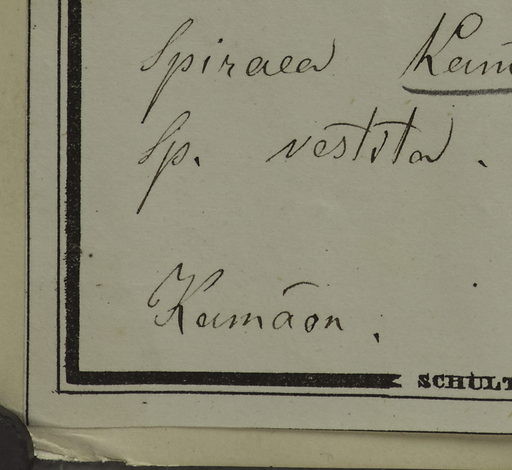 Spiraea Kam
Sp. vestita.
Kamāon.
SCHULT